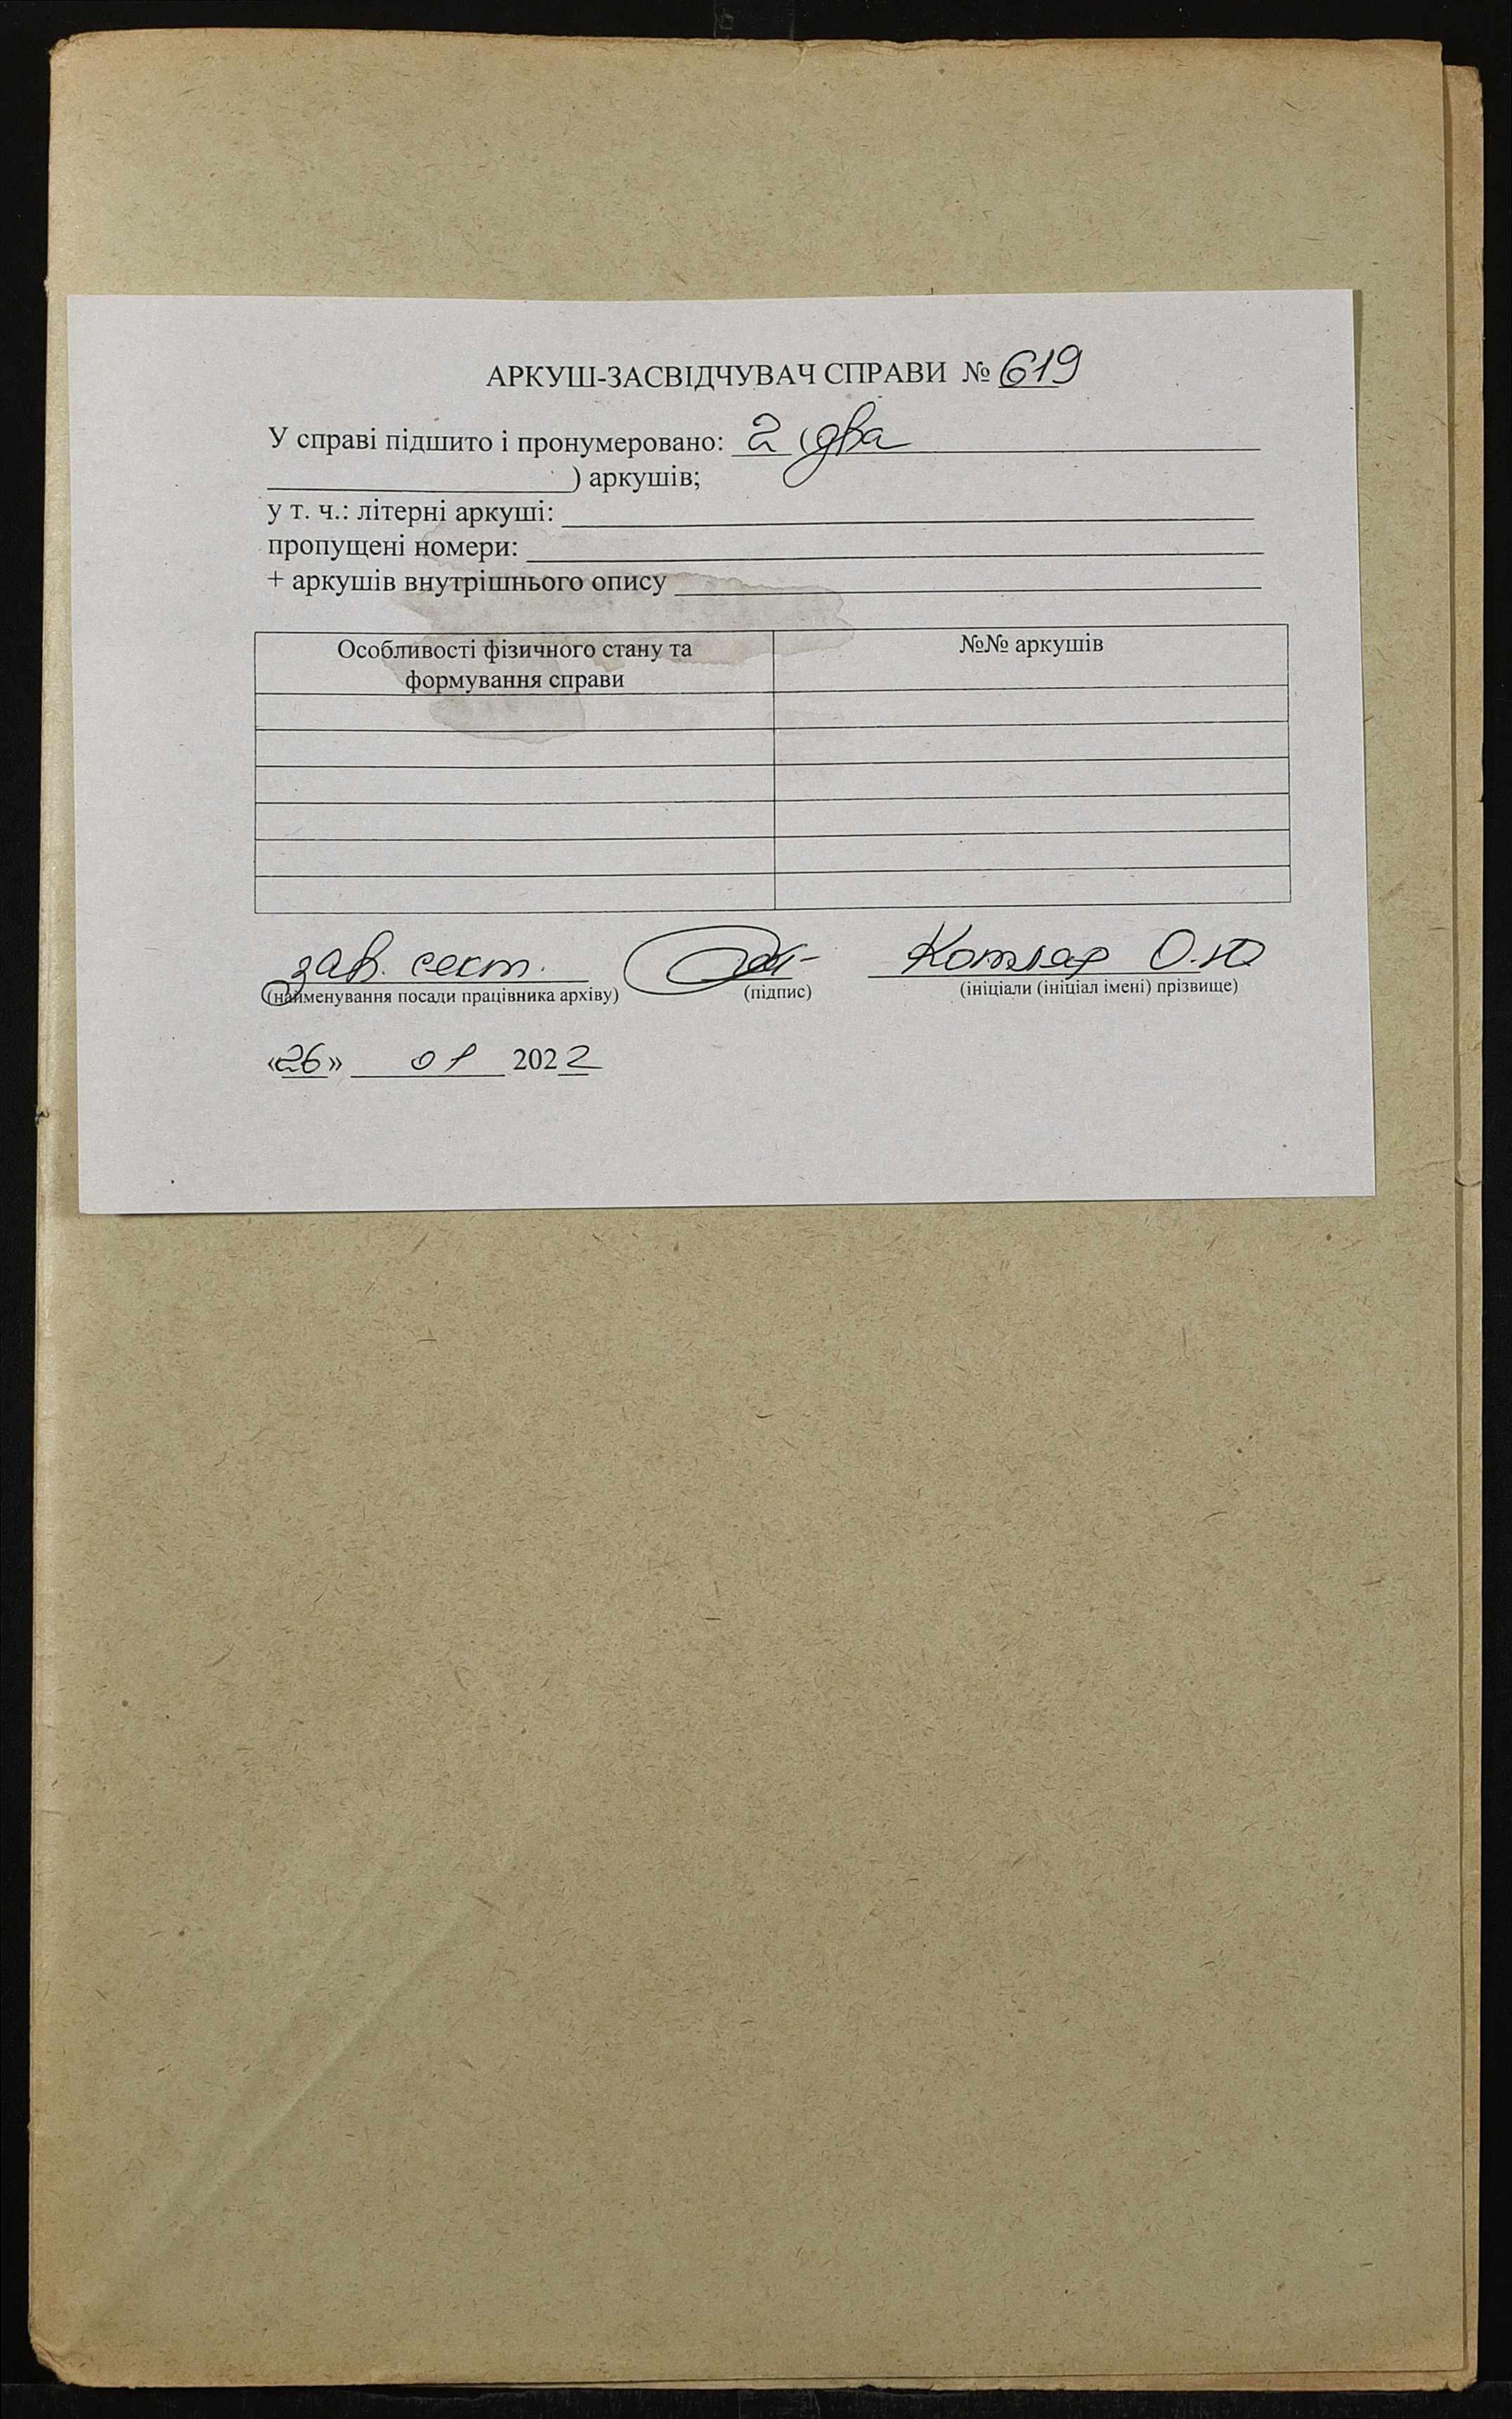 АРКУШ-ЗАСВІДЧУВАЧ СПРАВИ № 619
У справі підшито і пронумеровано: 2 (два
) аркушів;
у т. ч.: літерні аркуші:
пропущені номери:
+ аркушів внутрішнього опису
Особливості фізичного стану та формування справи
№№ аркушів
зав. сект. Котляр О.Ю
(найменування посади працівника архіву) (підпис) (ініціали (ініціал імені) прізвище)
«26» 01 2022